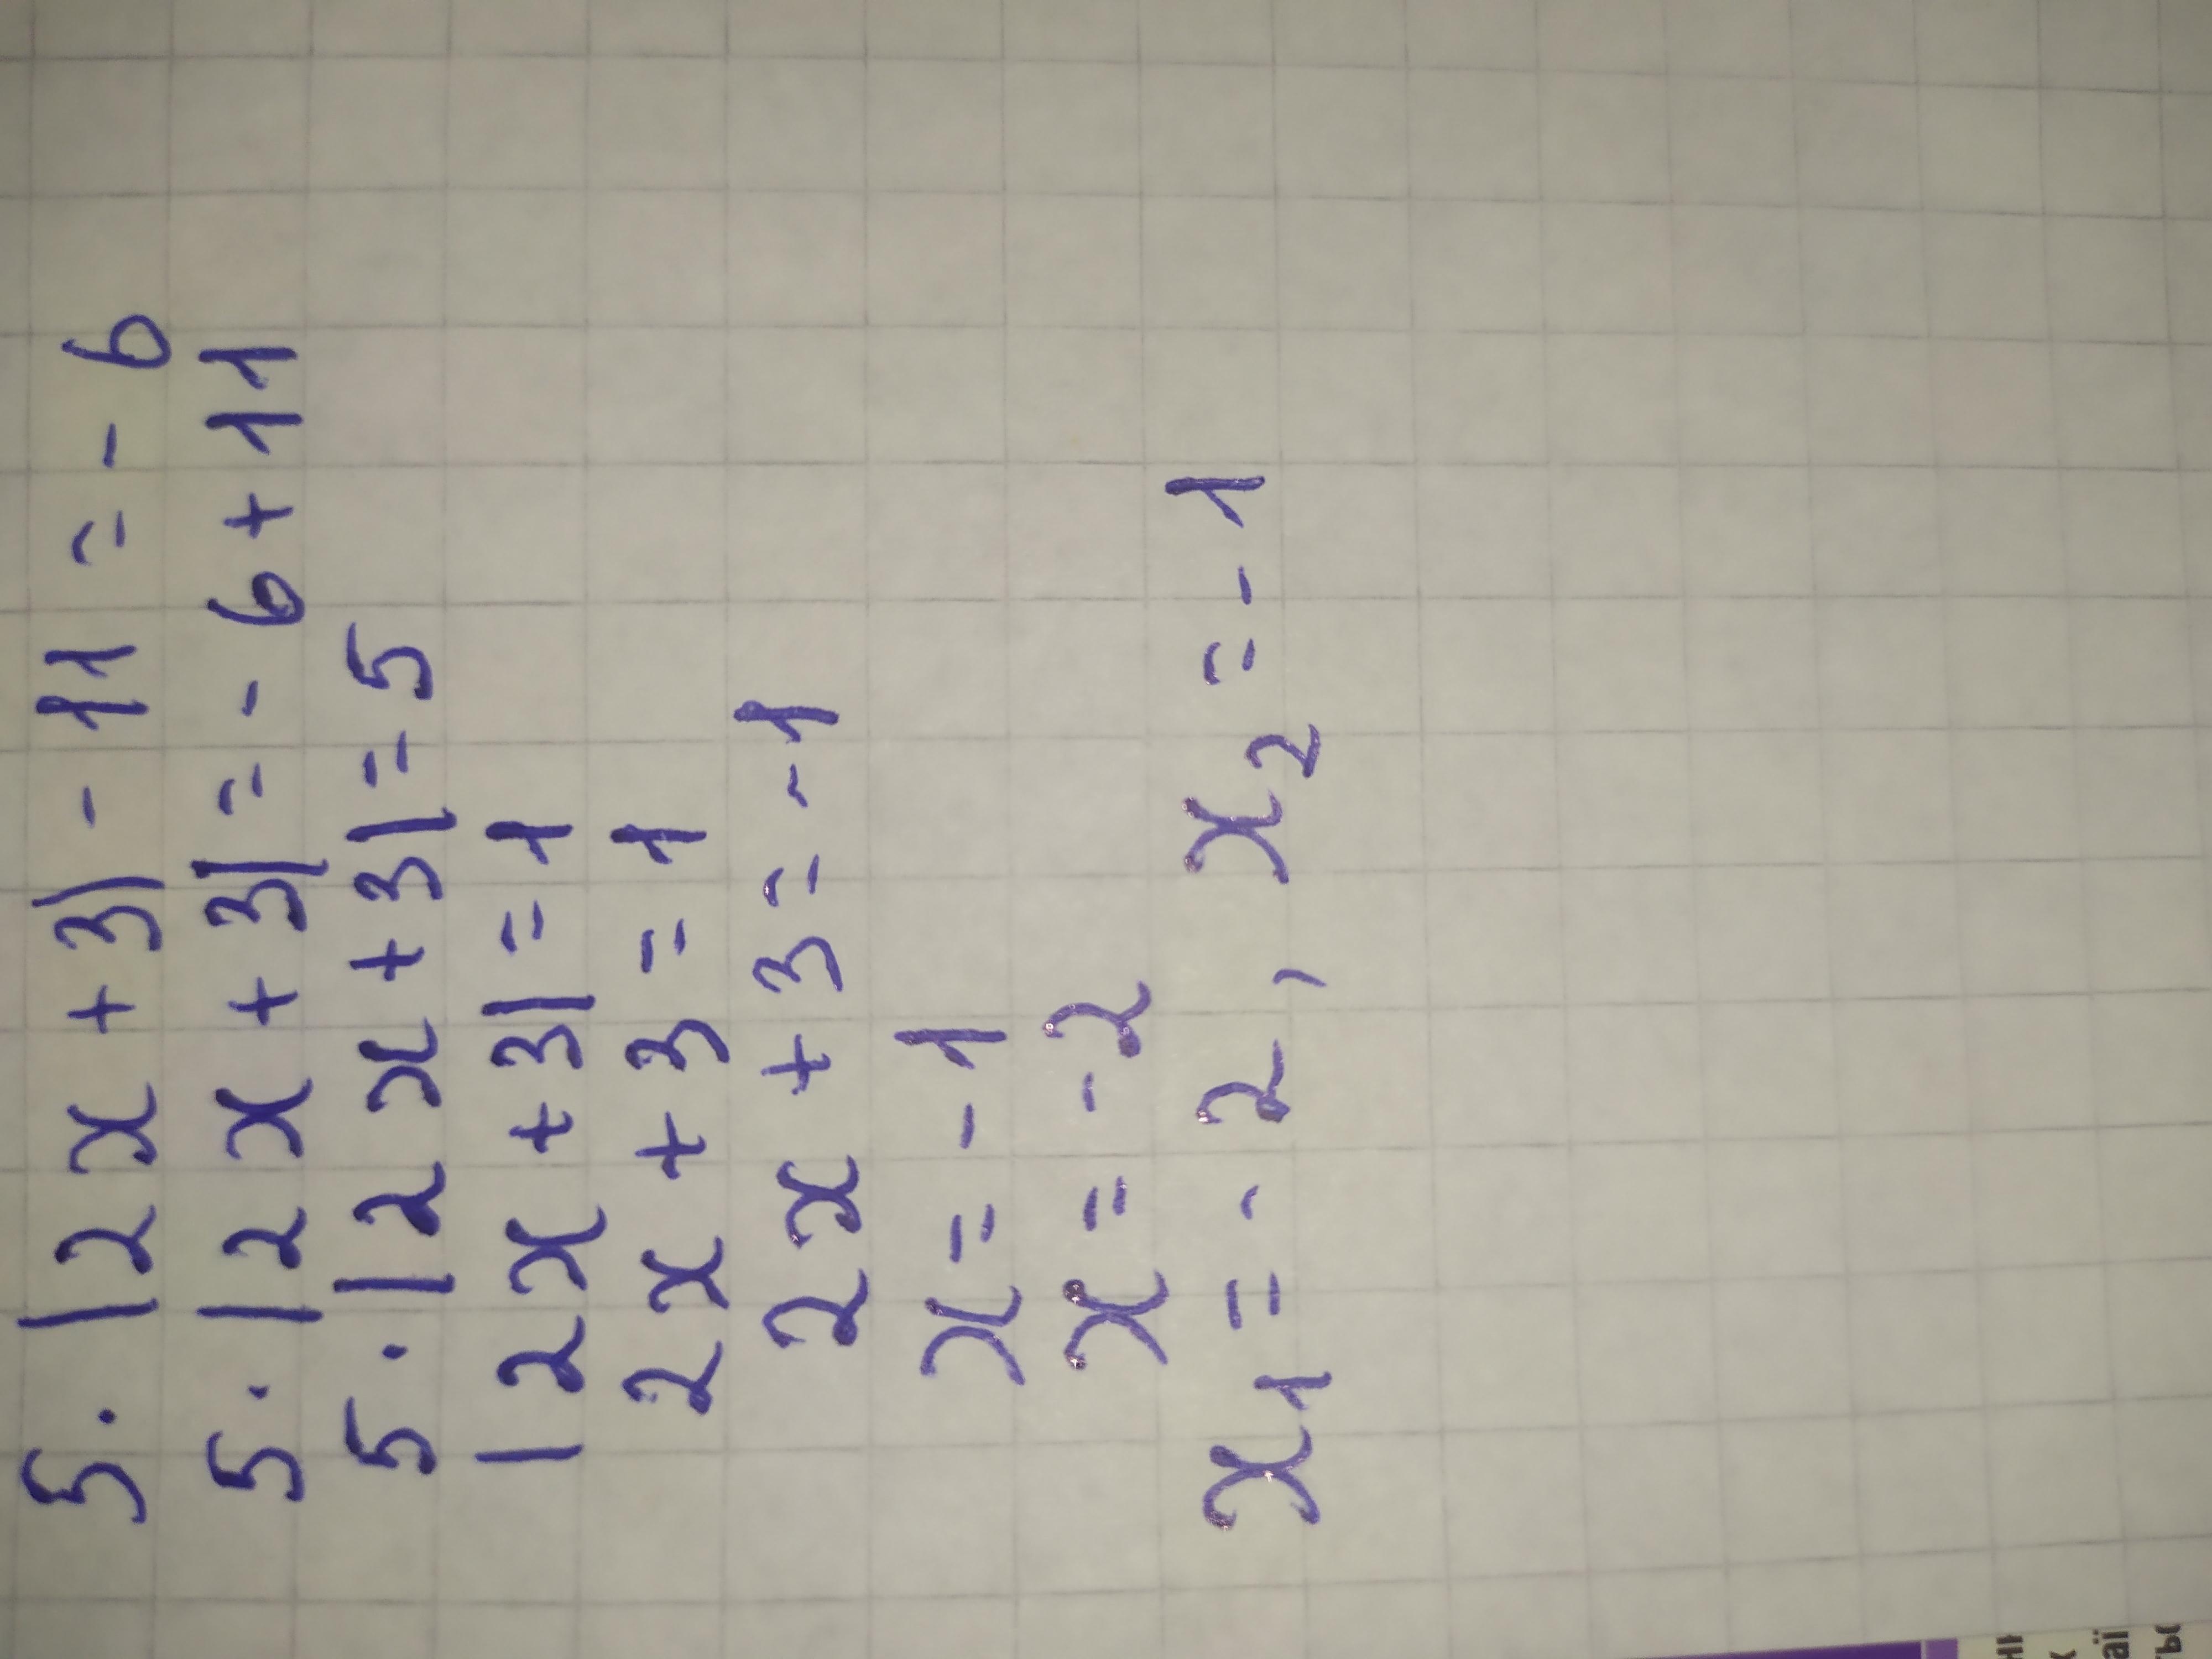 5·|2x+3|-11=-6
5·|2x+3|=-6+11
5·|2x+3|=5
|2x+3|=1
2x+3=1
2x+3=-1
x=-1
x=-2
x₁=-2, x₂=-1